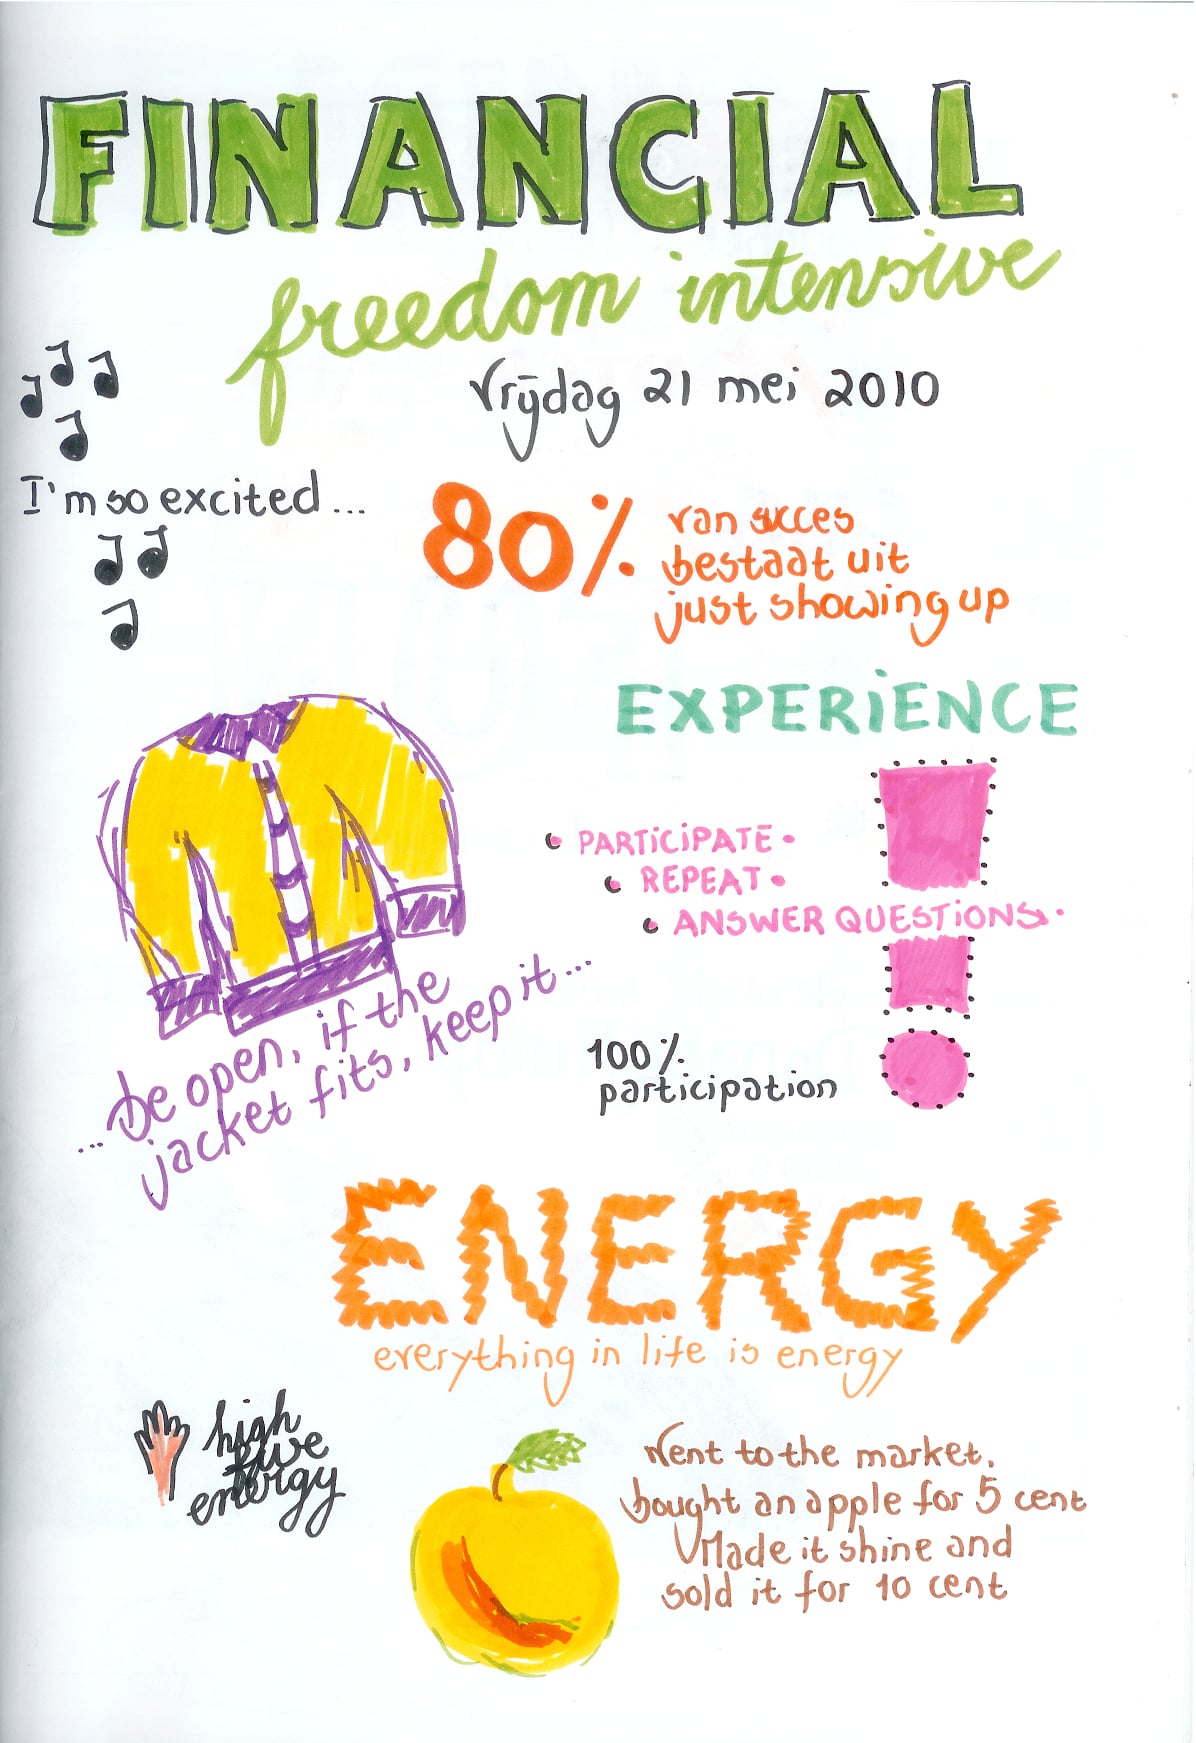 FINANCIAL
freedom intensive
Vrijdag 21 mei 2010
I'm so excited...
80% van succes
bestaat uit
just showing up
EXPERIENCE
• PARTICIPATE •
• REPEAT •
• ANSWER QUESTIONS •
100%
participation
...be open, if the
jacket fits, keep it...
ENERGY
everything in life is energy
high
five
energy
Went to the market,
bought an apple for 5 cent
Made it shine and
sold it for 10 cent